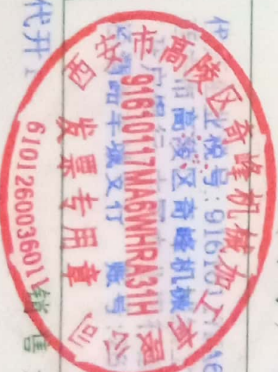 西安市高陵区奇峰机械加工有限公司
91610117MA6WHRA31H
发票专用章
6101260036011
市高陵区奇峰机械
账号
代开
销售